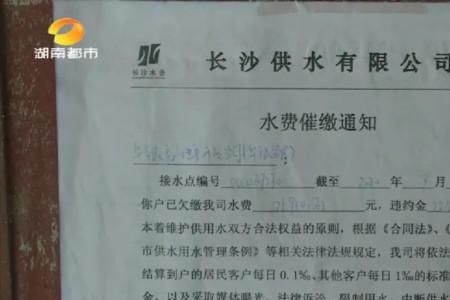 湖南都市
长沙水业
长沙供水有限公司
水费催缴通知
接水点编号 截至 年 月
你户已欠缴我司水费 元，违约金
本着维护供用水双方合法权益的原则，根据《合同法》、《
市供水用水管理条例》等相关法律法规规定，我司将依法
结算到户的居民客户每日0.1‰、其他客户每日1‰的标准
金，以及采取媒体曝光、法律诉讼、限制用水、中断供水